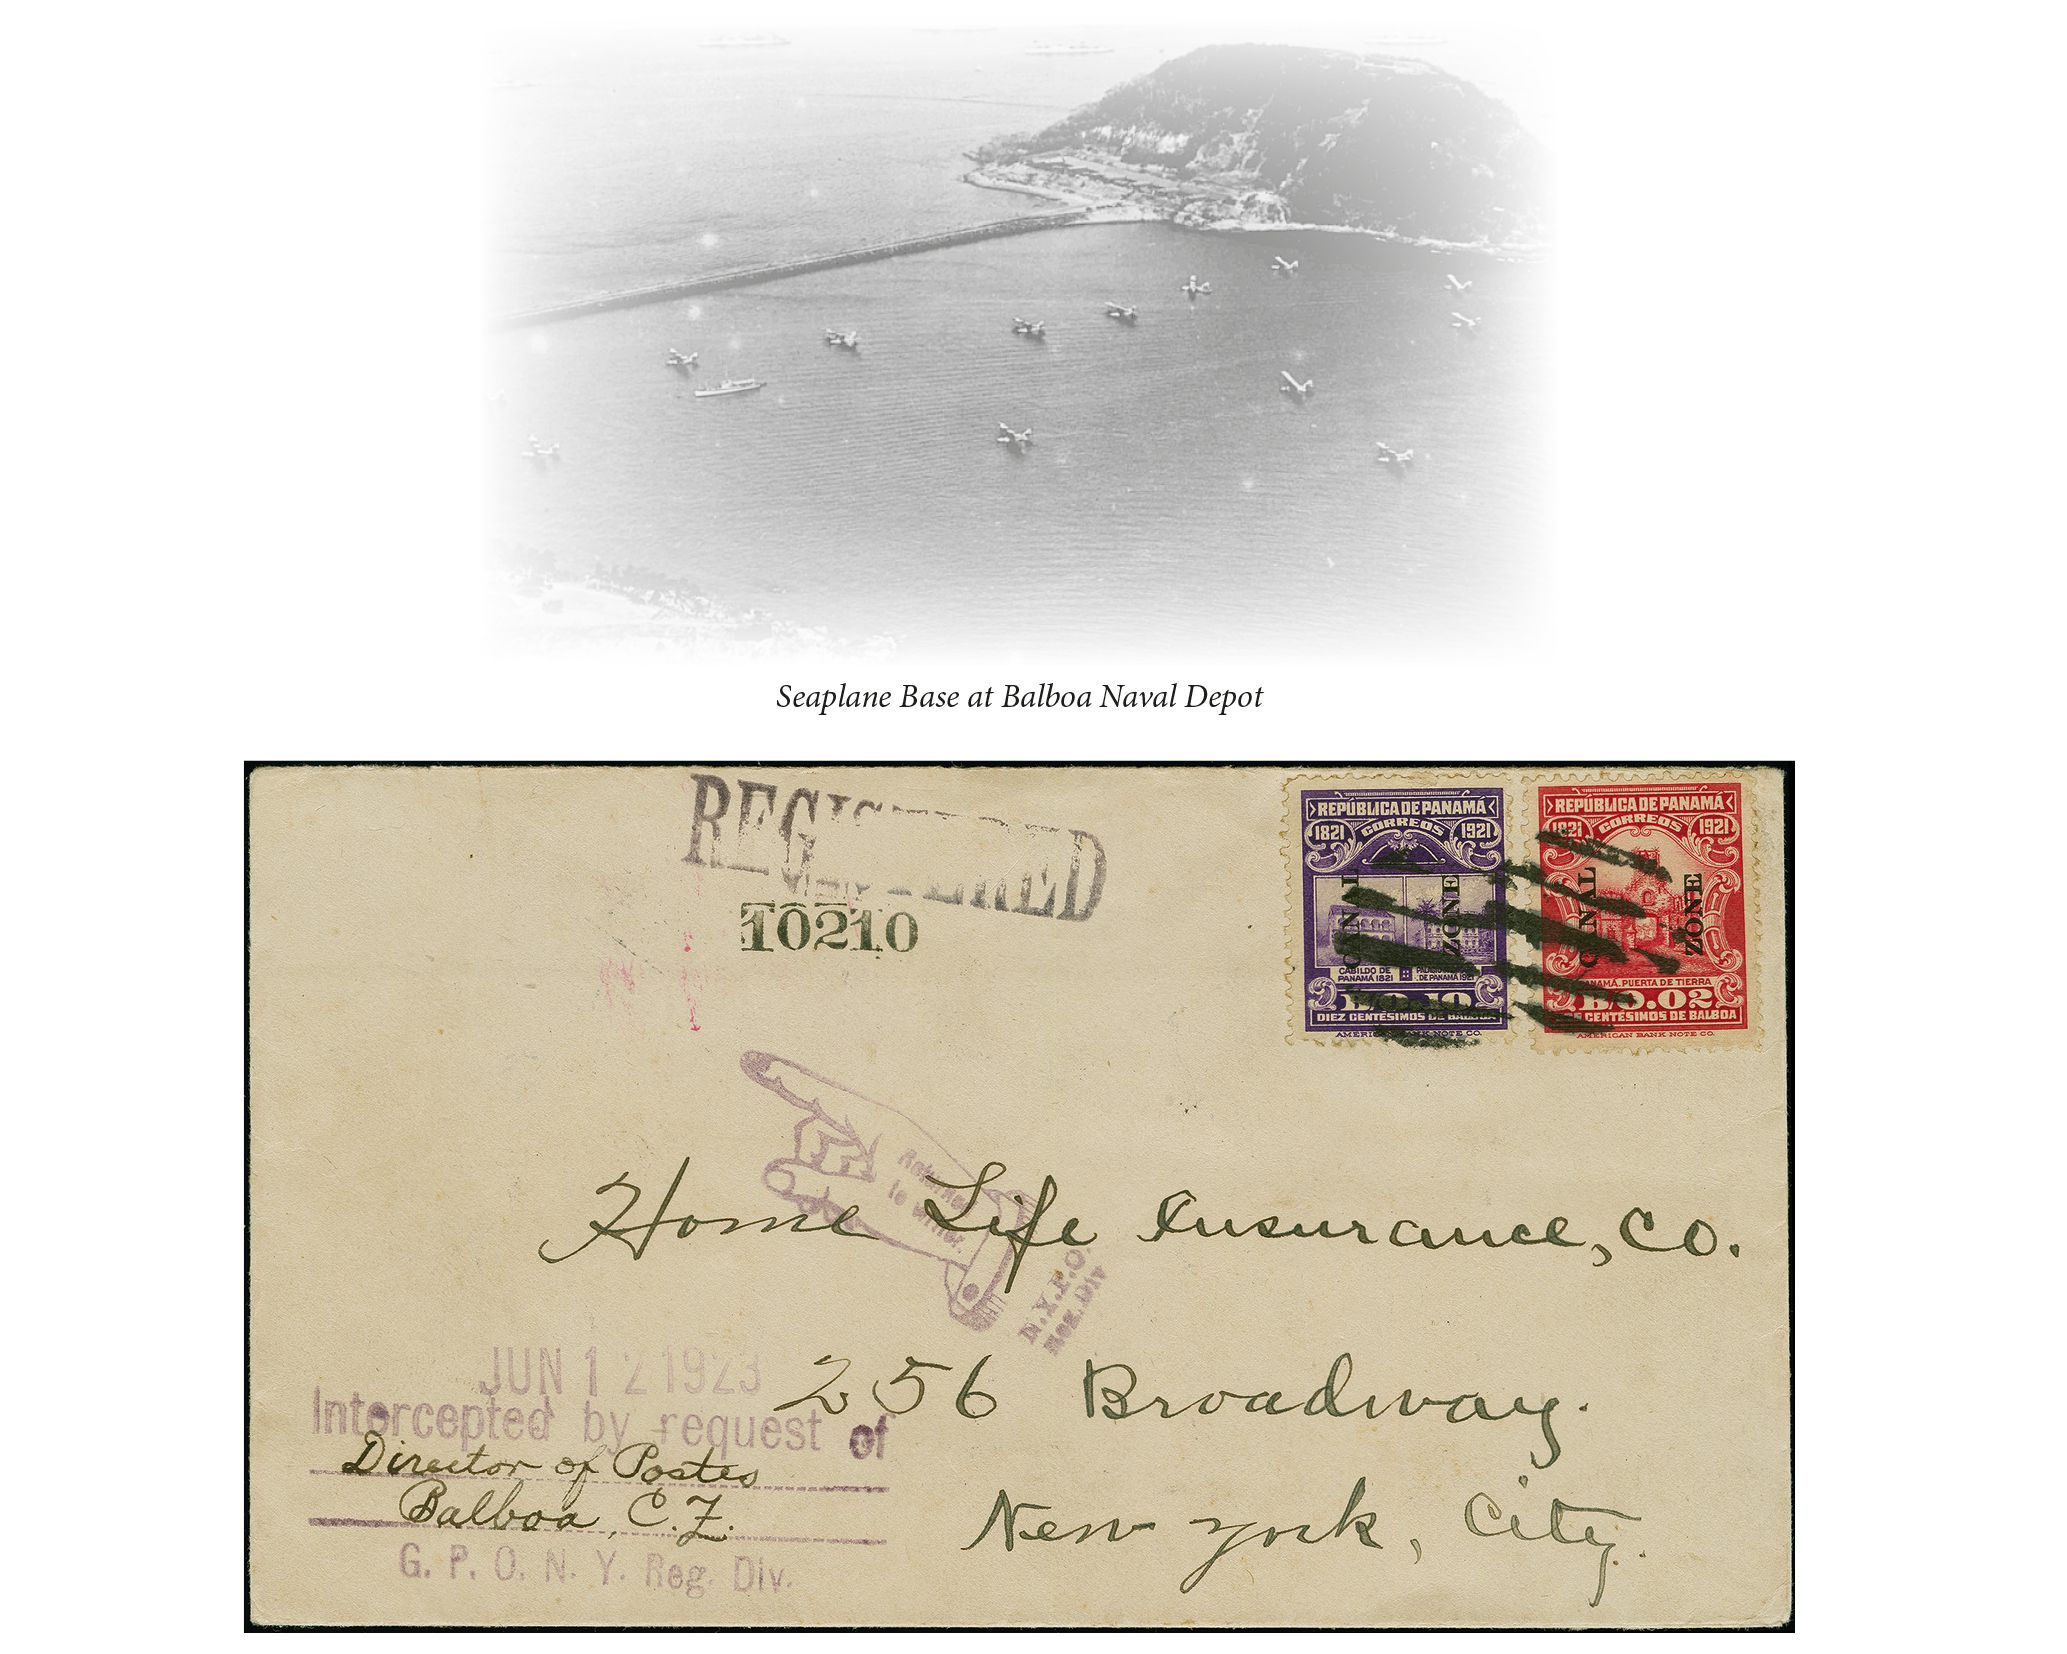 Seaplane Base at Balboa Naval Depot
REGISTERED
10210
REPÚBLICA DE PANAMÁ
1821 CORREOS 1921
CANAL ZONE
CABILDO DE PANAMÁ 1821
DE PANAMÁ 1921
B/0.10
DIEZ CENTÉSIMOS DE BALBOA
AMERICAN BANK NOTE CO.
REPÚBLICA DE PANAMÁ
1821 CORREOS 1921
CANAL ZONE
PANAMÁ. PUERTA DE TIERRA
B/0.02
CENTÉSIMOS DE BALBOA
AMERICAN BANK NOTE CO.
Returned
to writer.
N.Y.P.O.
Reg. Div
Home Life Insurance, Co.
256 Broadway.
New York, City.
JUN 12 1923
Intercepted by request of
Director of Postes
Balboa, C.Z.
G. P. O. N. Y. Reg. Div.